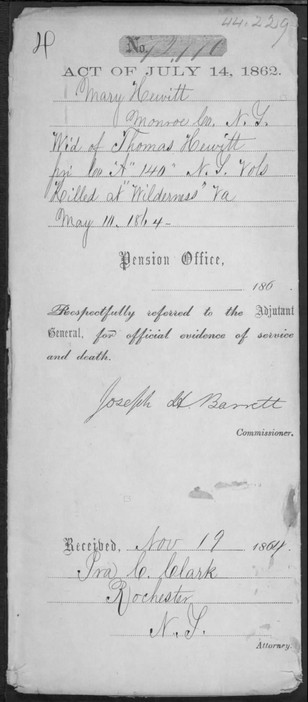 44.229
H
No 72,776
ACT OF JULY 14, 1862.
Mary Hewitt
Monroe Co. N.Y.
Wid of Thomas Hewitt
pri Co "A" 140" N.Y. Vols
Killed at "Wilderness" Va
May 10, 1864
Pension Office,
186
Respectfully referred to the Adjutant
General, for official evidence of service
and death.
Joseph H Barrett
Commissioner.
Received, Nov 19 1864
Ira C. Clark
Rochester
N.Y.
Attorney